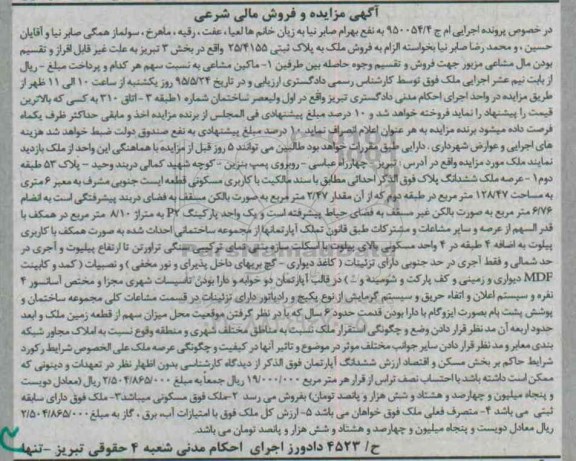 آگهی مزایده و فروش مالی شرعی
در خصوص پرونده اجرایی ام ج ۹۵۰۰۵۴/۴ به نفع بهرام صابر نیا به زیان خانم ها لعیا، عفت ، رقیه ، ماهرخ ، سولماز همگی صابر نیا و آقایان
حسین ، و محمد رضا صابر نیا بخواسته الزام به فروش ملک به پلاک ثبتی ۲۵/۴۱۵۵ واقع در بخش ۳ تبریز به علت غیر قابل افراز و تقسیم
بودن مال مشاعی مزبور جهت فروش و تقسیم وجوه حاصله بین طرفین ۱- ماکین مشاعی به نسبت سهم هر کدام و پرداخت مبلغ - ریال
از بابت نیم عشر اجرایی ملک فوق توسط کارشناس رسمی دادگستری ارزیابی و در تاریخ ۹۵/۵/۲۴ روز یکشنبه از ساعت ۱۰ الی ۱۱ ظهر از
طریق مزایده در واحد اجرای احکام مدنی دادگستری تبریز واقع در اول ولیعصر ساختمان شماره ۱ طبقه ۳ - اتاق ۳۱۰ به کسی که بالاترین
قیمت را پیشنهاد را نماید فروخته خواهد شد و ۱۰ درصد مبلغ پیشنهادی فی المجلس از برنده مزایده اخذ و مابقی حداکثر ظرف یکماه
فرصت داده میشود برنده مزایده به هر عنوان اعلام انصراف نماید، ۱۰ درصد مبلغ پیشنهادی به نفع صندوق دولت ضبط خواهد شد هزینه
های اجرایی و عوارض شهرداری ، دارایی طبق مقررات خواهد بود طالبین می توانند ۵ روز قبل از مزایده با هماهنگی این واحد از ملک بازدید
نمایند ملک مورد مزایده واقع در آدرس : تبریز- چهارراه عباسی - روبروی پمپ بنزین - کوچه شهید کمالی دربند وحید - پلاک ۵۳ طبقه
دوم ۱- عرصه ملک ششدانگ پلاک فوق الذکر احداثی مطابق با سند مالکیت با کاربری مسکونی قطعه ایست جنوبی مشرف به معبر ۶ متری
به مساحت ۱۲۸/۴۷ متر مربع در طبقه دوم که از آن مقدار ۲/۴۷ متر مربع به صورت بالکن مسقف به فضای دربند پیشرفتگی است به انضمام
۶/۷۶ متر مربع به صورت بالکن غیر مسقف به فضای حیاط پیشرفته است و یک واحد پارکینگ P۲ به متراژ ۸/۱۰ متر مربع در همکف با
قدر السهم از عرصه و سایر مشاعات و مشترکات طبق قانون تملک آپارتمانها از مجموعه ساختمانی احداث شده به صورت همکف با کاربری
پیلوت به اضافه ۴ طبقه در ۴ واحد مسکونی بالای پیلوت با اسکلت سازه بتنی نمای ترکیبی سنگی تراورتن تا ارتفاع پیلوت و آجری در
حد شمالی و فقط آجری در حد جنوبی دارای تزئینات ( کاغذ دیواری - گچ بریهای داخل پذیرایی و نور مخفی ) و نصبیات ( کمد و کابینت
MDF دیواری و زمینی و کف پارکت و شومینه و ... ) در قالب آپارتمان دو خوابه و دارا بودن تأسیسات شهری مجزا و مختص آسانسور ۴
نفره و سیستم اعلان و اتفاء حریق و سیستم گرمایش از نوع پکیج و رادیاتور دارای تزئینات در قسمت مشاعات کلی مجموعه ساختمان و
پوشش پشت بام بصورت ایزوگام با دارا بودن قدمت حدود ۶ سال که با در نظر گرفتن موقعیت محل میزان سهم از قطعه زمین ملک و ابعد
حدود اربعه آن مد نظر قرار دادن وضع و چگونگی استقرار ملک نسبت به مناطق مختلف شهری و منطقه وقوع نسبت به املاک مجاور شبکه
بندی معابر و مد نظر قرار دادن سایر جوانب مختلف موثر در موضوع و تاثیر آنها در کیفیت و چگونگی عرصه ملک علی الخصوص شرایط رکورد
شرایط حاکم بر بخش مسکن و اقتصاد ارزش ششدانگ آپارتمان فوق الذکر از دیدگاه کارشناسی بدون اظهار نظر در تعهدات و دیونی که
ممکن است داشته باشد با احتساب نصف تراس از قرار هر متر مربع ۱۹/۰۰۰/۰۰۰ ریال جمعاً به مبلغ ۲/۵۰۴/۸۶۵/۰۰۰ ریال (معادل دویست
و پنجاه میلیون و چهارصد و هشتاد و شش هزار و پانصد تومان) بفروش می رسد ۲- ملک فوق مسکونی میباشد ۳- ملک فوق دارای سابقه
ثبتی می باشد ۴- متصرف فعلی ملک فوق خواهان می باشد ۵- ارزش کل ملک فوق با امتیازات آب، برق ، گاز به مبلغ ۲/۵۰۴/۸۶۵/۰۰۰
ریال معادل دویست و پنجاه میلیون و چهارصد و هشتاد و شش هزار و پانصد تومان می باشد.
ح/ ۴۵۲۳ دادورز اجرای احکام مدنی شعبه ۴ حقوقی تبریز -تنها